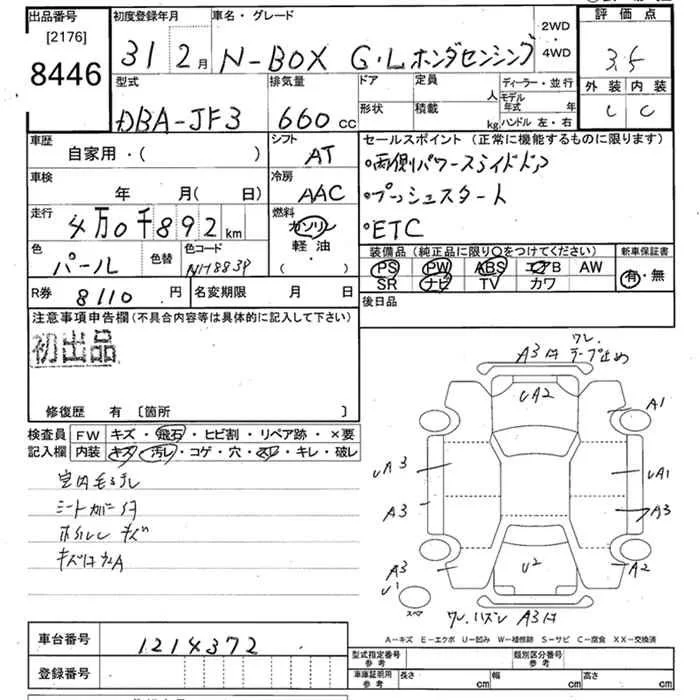 出品番号
[2176]
8446
初度登録年月
31 2 月
車名・グレード
N-BOX G・Lホンダセンシング
2WD
4WD
評価点
3.5
外装 内装
C C
型式
DBA-JF3
排気量
660 cc
ドア
形状
定員 人
積載 kg
ディーラー・並行
モデル年式 年
ハンドル 左・右
車歴
自家用・( )
シフト
AT
セールスポイント(正常に機能するものに限ります)
・両側パワースライドドア
・プッシュスタート
・ETC
車検
年 月( 日)
冷房
AAC
走行
4万0千892km
燃料
ガソリン
軽油・
( )
色
パール
色替
色コード
NH883P
装備品(純正品に限り○をつけてください)
PS PW ABS エアB AW
SR ナビ TV カワ
新車保証書
有・無
R券 8110 円
名変期限 月 日
後日品
注意事項申告欄(不具合内容等は具体的に記入して下さい)
初出品
修復歴 有 [箇所 ]
検査員記入欄
FW キズ・飛石・ヒビ割・リペア跡・×要
内装 キズ・汚レ・コゲ・穴・スレ・キレ・破レ
シートカバー付
ホイル キズ
ワレ
テープ止め
A3
UA2
A1
UA3
UA1
A3
A3
A3
U1
U2
A2
スペア
ワレ ハズレ A3
A-キズ E-エクボ U-凹み W-補修跡 S-サビ C-腐食 XX-交換済
車台番号
1214372
登録番号
型式指定番号 参考
類別区分番号 参考
車庫証明用 参考
長さ cm 幅 cm 高さ cm